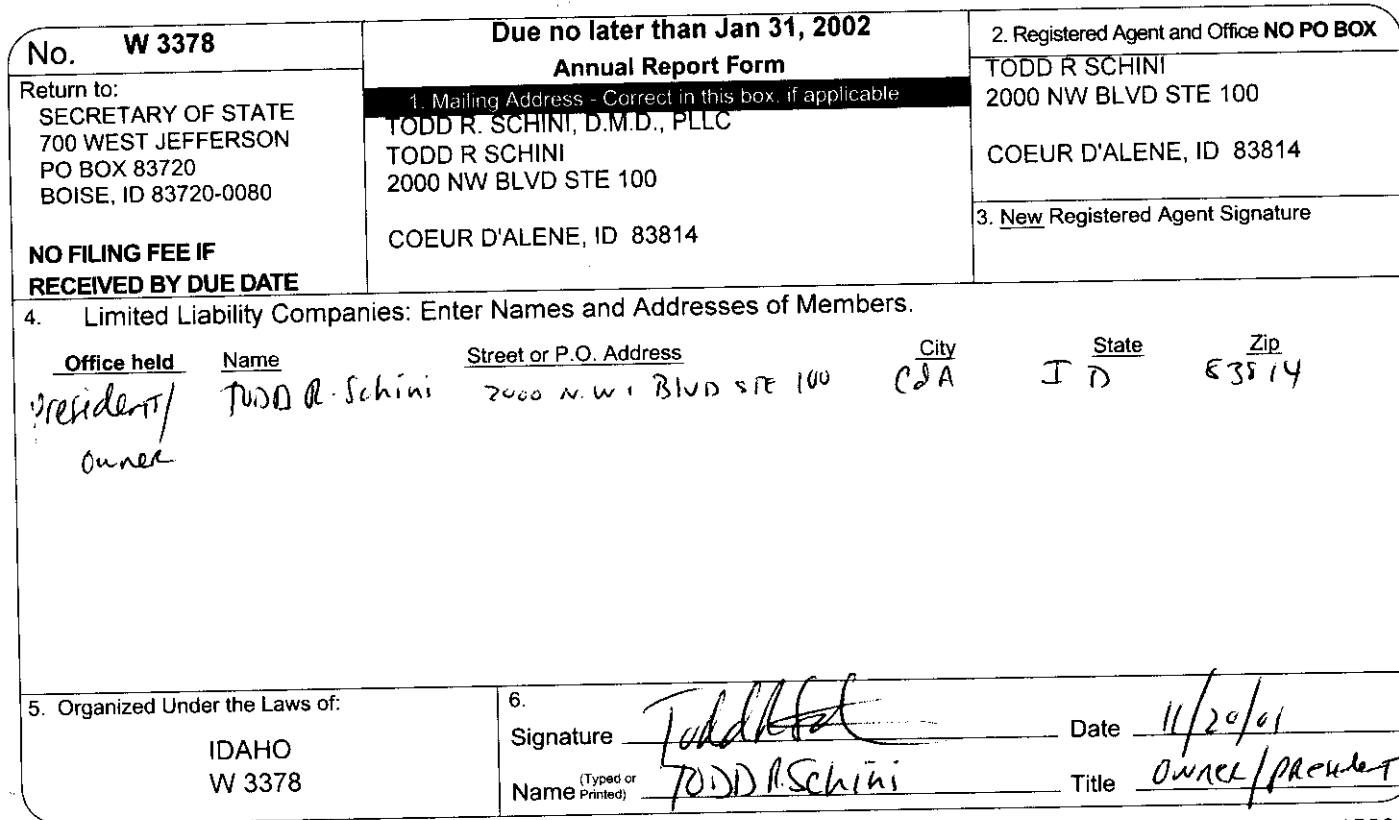 No. W 3378
Return to:
SECRETARY OF STATE
700 WEST JEFFERSON
PO BOX 83720
BOISE, ID 83720-0080
NO FILING FEE IF
RECEIVED BY DUE DATE
Due no later than Jan 31, 2002
Annual Report Form
1. Mailing Address - Correct in this box, if applicable
TODD R. SCHINI, D.M.D., PLLC
TODD R SCHINI
2000 NW BLVD STE 100
COEUR D'ALENE, ID 83814
2. Registered Agent and Office NO PO BOX
TODD R SCHINI
2000 NW BLVD STE 100
COEUR D'ALENE, ID 83814
3. New Registered Agent Signature
4. Limited Liability Companies: Enter Names and Addresses of Members.
Office held Name Street or P.O. Address City State Zip
President/ TODD R. Schini 2000 N.W. BLVD STE 100 CdA ID 83814
owner
5. Organized Under the Laws of:
IDAHO
W 3378
6.
Signature Date 11/20/01
Name (Typed or Printed) TODD R. Schini Title Owner/President